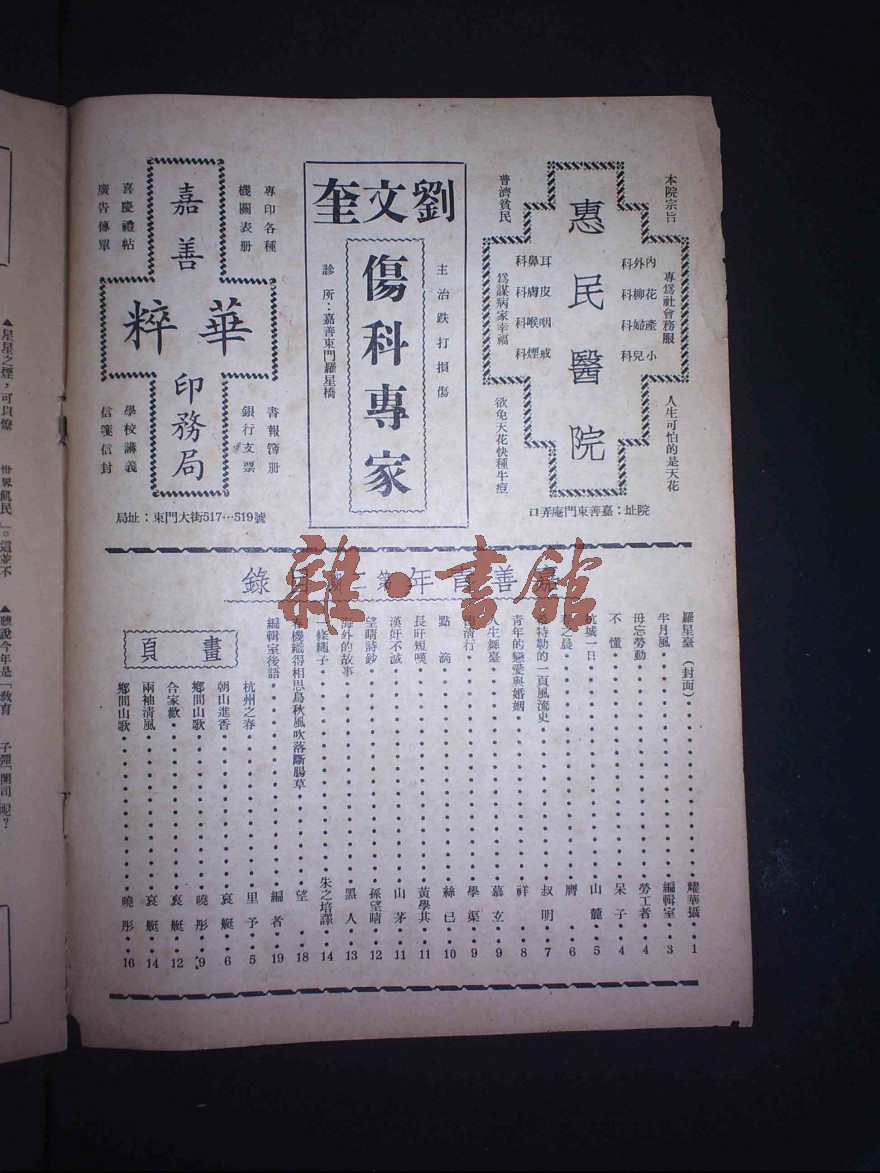 惠民醫院
本院宗旨
專爲社會務服
人生可怕的是天花
普濟貧民
爲謀病家幸福
欲免天花快種牛痘
內外科
花柳科
產婦科
小兒科
耳鼻科
皮膚科
咽喉科
戒煙科
院址：嘉善東門庵弄口
劉文奎
傷科專家
主治跌打損傷
診所：嘉善東門羅星橋
嘉善
華粹
印務局
專印各種
機關表册
喜慶禮帖
廣告傳單
書報簿册
銀行支票
學校講義
信箋信封
局址：東門大街517…519號
嘉善青年第二期目錄
羅星臺（封面）耀華攝 1
半月風 編輯室 3
毋忘勞動 勞工者 4
不懂 呆子 4
杭城一日 山麓 5
之晨 膺 6
特勒的一頁風流史 叔明 7
青年的戀愛與婚姻 祥 8
人生舞臺 慕玄 9
清行 學蕖 9
點滴 絲已 10
長旰短嘆 黃學其 11
漢奸不滅 山茅 11
望晴詩鈔 孫望晴 12
海外的故事 黑人 13
一條繩子 朱之培譯 14
春機織得相思鳥秋風吹落斷腸草 望 18
編輯室後語 編者 19
畫頁
杭州之春 里予 5
朝山進香 哀艇 6
鄉間山歌 曉彤 9
合家歡 哀艇 12
兩袖清風 哀艇 14
鄉間山歌 曉彤 16
雜·書館
▲星星之煙，可以燎
世界飢民」。這並不
▲聽說今年是「教育
子彈「開司」呢？